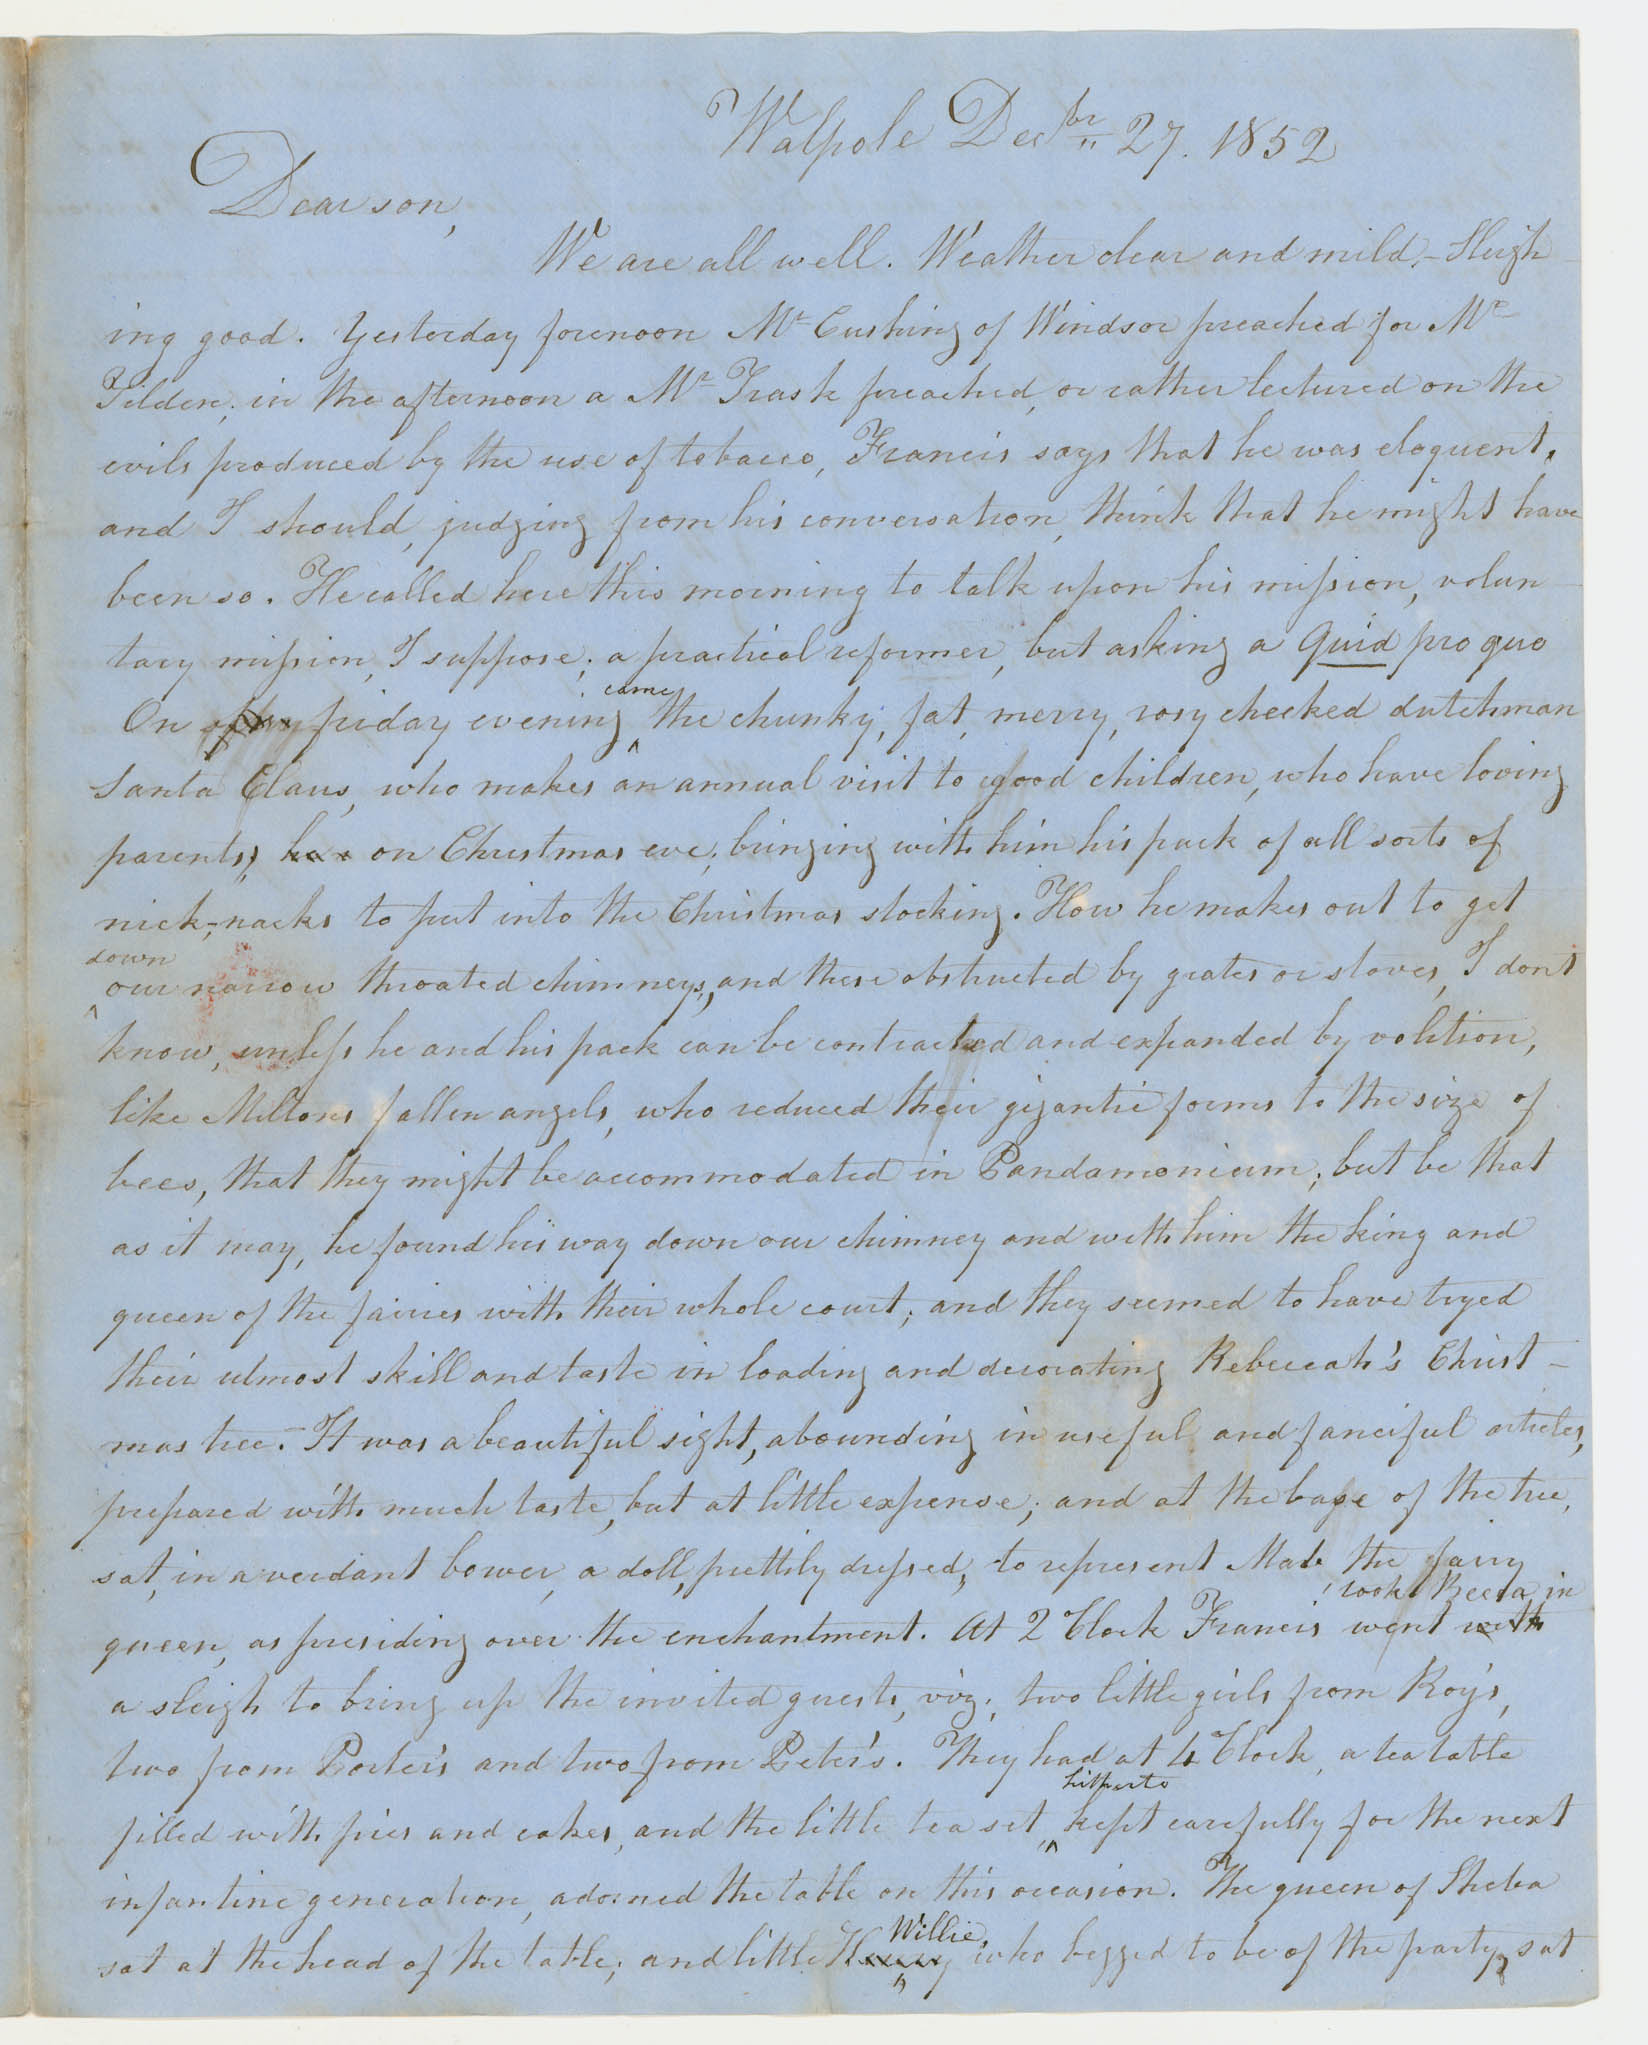 Walpole Decbr 27. 1852
Dear son,
We are all well. Weather clear and mild,- Sleigh
ing good. Yesterday forenoon Mr Cushing of Windsor preached for Mr
Tilden; in the afternoon a Mr Trask preached, or rather lectured on the
evils produced by the use of tobacco, Francis says that he was eloquent,
and I should, judging from his conversation, think that he might have
been so. He called here this morning to talk upon his mission, volun
tary mission, I suppose; a practical reformer, but asking a Quid pro quo
came
On friday evening the chunky, fat, merry, rosy cheeked dutchman
Santa Claus, who makes an annual visit to good children, who have loving
parents, on Christmas eve; bringing with him his pack of all sorts of
nick-nacks to put into the Christmas stocking. How he makes out to get
down
our narrow throated chimneys, and these obstructed by grates or stoves, I dont
know, unless he and his pack can be contracted and expanded by volition,
like Miltons fallen angels, who reduced their gigantic forms to the size of
bees, that they might be accommodated in Pandamonium; but be that
as it may, he found his way down our chimney and with him the king and
queen of the fairies with their whole court; and they seemed to have tryed
their utmost skill and taste in loading and decorating Rebeccah's Christ-
mas tree. It was a beautiful sight, abounding in useful and fanciful articles,
prepared with much taste, but at little expense; and at the base of the tree,
sat, in a verdant bower, a doll, prettily dressed, to represent Mab, the fairy
took Becca in
queen, as presiding over the enchantment. At 2 Clock Francis went with
a sleigh to bring up the invited guests, viz; two little girls from Roy's,
two from Porter's and two from Peter's. They had at 4 Clock, a tea table
hitherto
filled with pies and cakes, and the little tea set, kept carefully for the next
infantine generation, adorned the table on this occasion. The queen of Sheba
Willie,
sat at the head of the table; and little Henry who begged to be of the party, sat